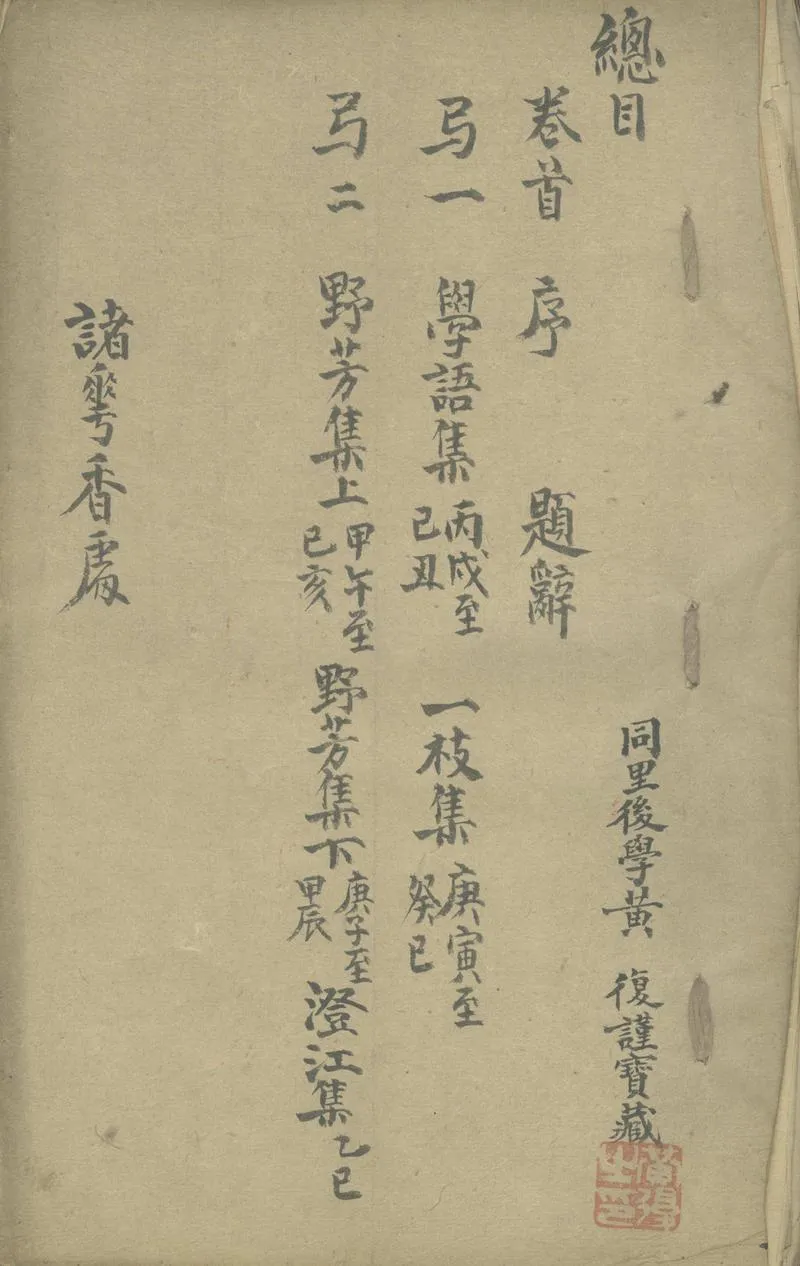 總目
同里後學黃 復謹寶藏
卷首 序 題辭
弓一 學語集 丙戌至己丑 一枝集 庚寅至癸巳
弓二 野芳集上 甲午至己亥 野芳集下 庚子至甲辰 澄江集 乙巳
諸萼香處